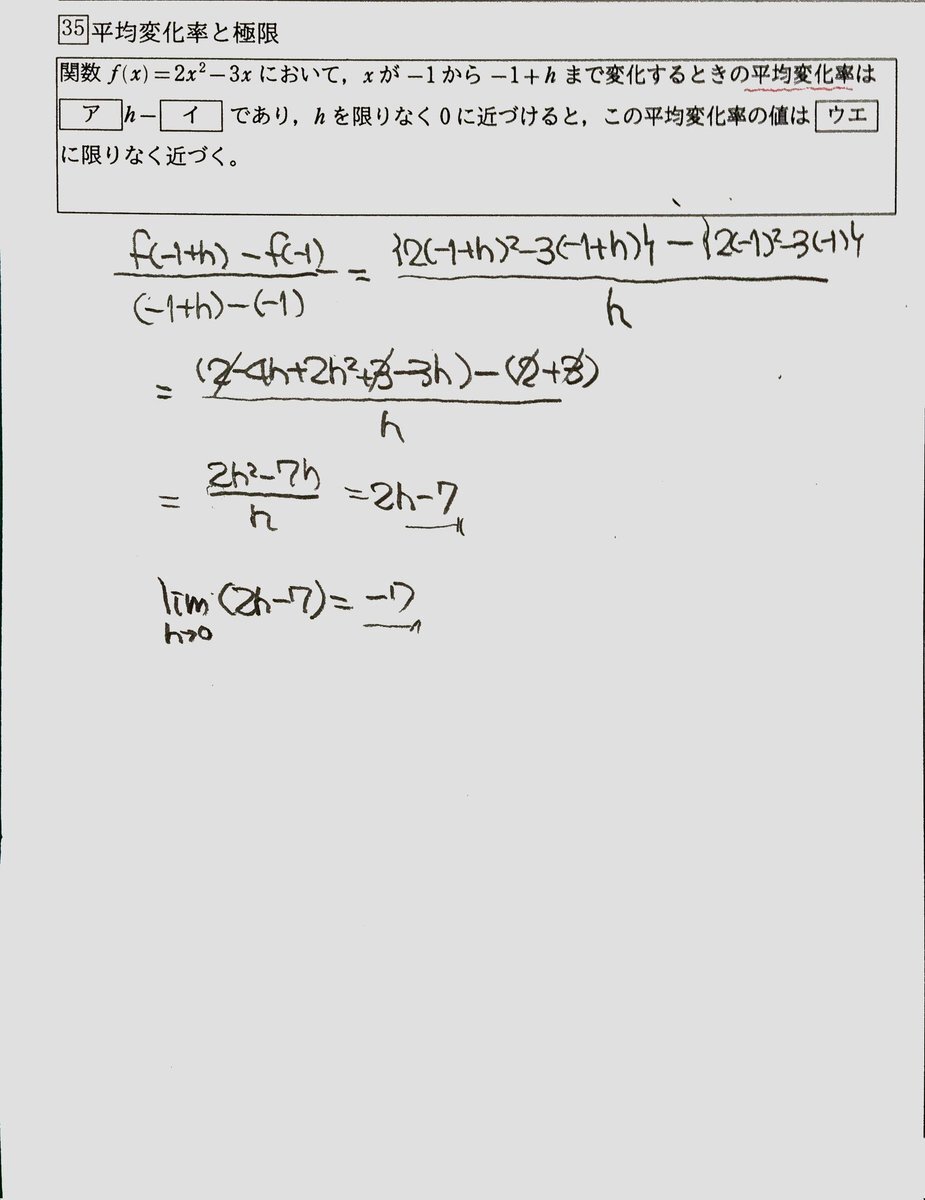 35 平均変化率と極限
関数 f(x)=2x²−3x において，x が −1 から −1+h まで変化するときの平均変化率は
ア h− イ であり，h を限りなく 0 に近づけると，この平均変化率の値は ウエ
に限りなく近づく。
f(-1+h) - f(-1) / (-1+h)-(-1) = {2(-1+h)²-3(-1+h)} - {2(-1)²-3(-1)} / h
= (2-4h+2h²+3-3h)-(2+3) / h
= 2h²-7h / h = 2h-7
lim h→0 (2h-7) = -7